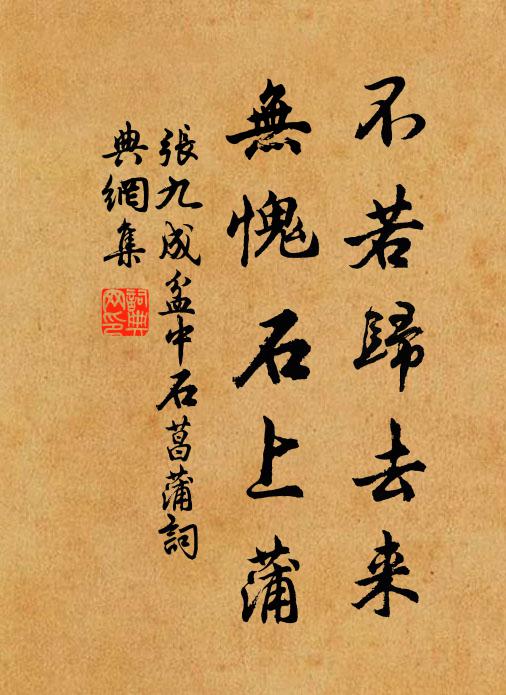 不若歸去来
無愧石上蒲
張九成盆中石菖蒲詞
典網集
詞典
网印